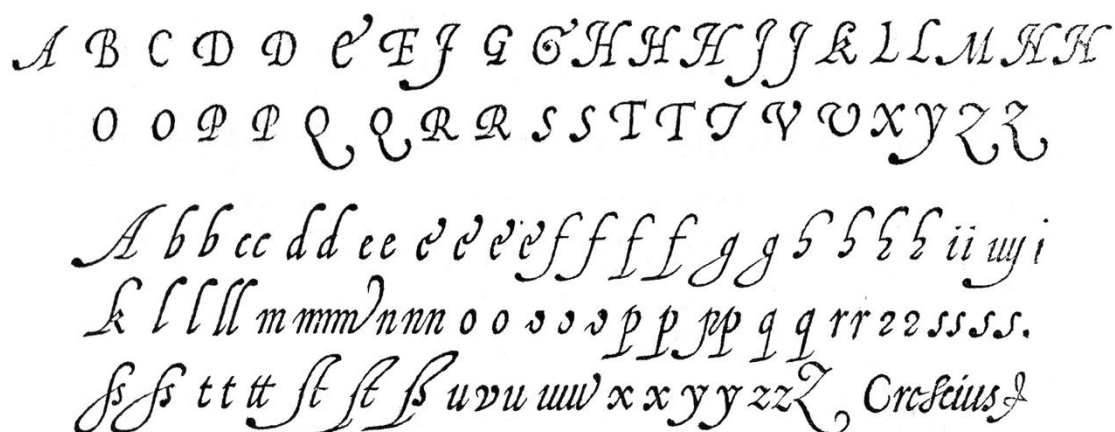 A B C D D E E F G G H H H J J K L L M N N
O O P P Q Q R R S S T T T V V X Y Z Z
A b b cc d d e e e e e e f f f f g g h h h h ii uy i
k l l ll m mm n nn o o o o o p p pp q q r r 2 2 s s s s.
ſs ſs t t tt ſt ſt ß u v u uu x x y y zz Z Creſcius &